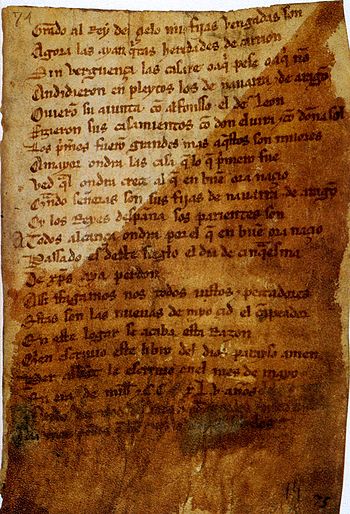 71
Grado al Rey del çielo mis fijas vengadas son
Agora las ayan quitas heredades de carrion
Sin verguença las casare o aq̅ pese o aq̅ nõ
Andidieron en pleytos los de nauarra & de aragõ
Ouierõ su aiunta cõ alfonsso el de Leon
Fizieron sus casamientos cõ don eluira & cõ doña sol
Los p̅meros fuerõ grandes mas aq̅stos son miiores
A mayor ondra las casa q̅ lo q̅ p̅mero fue
Ved q̅l ondra creçe al q̅ en buẽ ora naçio
Q̅ndo señoras son sus fijas de nauarra & de aragõ
Oy los Reyes despaña sos parientes son
A todos alcança ondra por el q̅ en buẽ ora naçio
Passado es deste sieglo el dia de cinq̅esma
De xp̅s aya perdon
Assi ffagamos nos todos iustos & peccadores
Estas son las nueuas de myo çid el campeador
En este logar se acaba esta Razon
Quien escriuio este libro del dios parayso amen
Per abbat le escriuio en el mes de mayo
En era de mill & CC xLv años